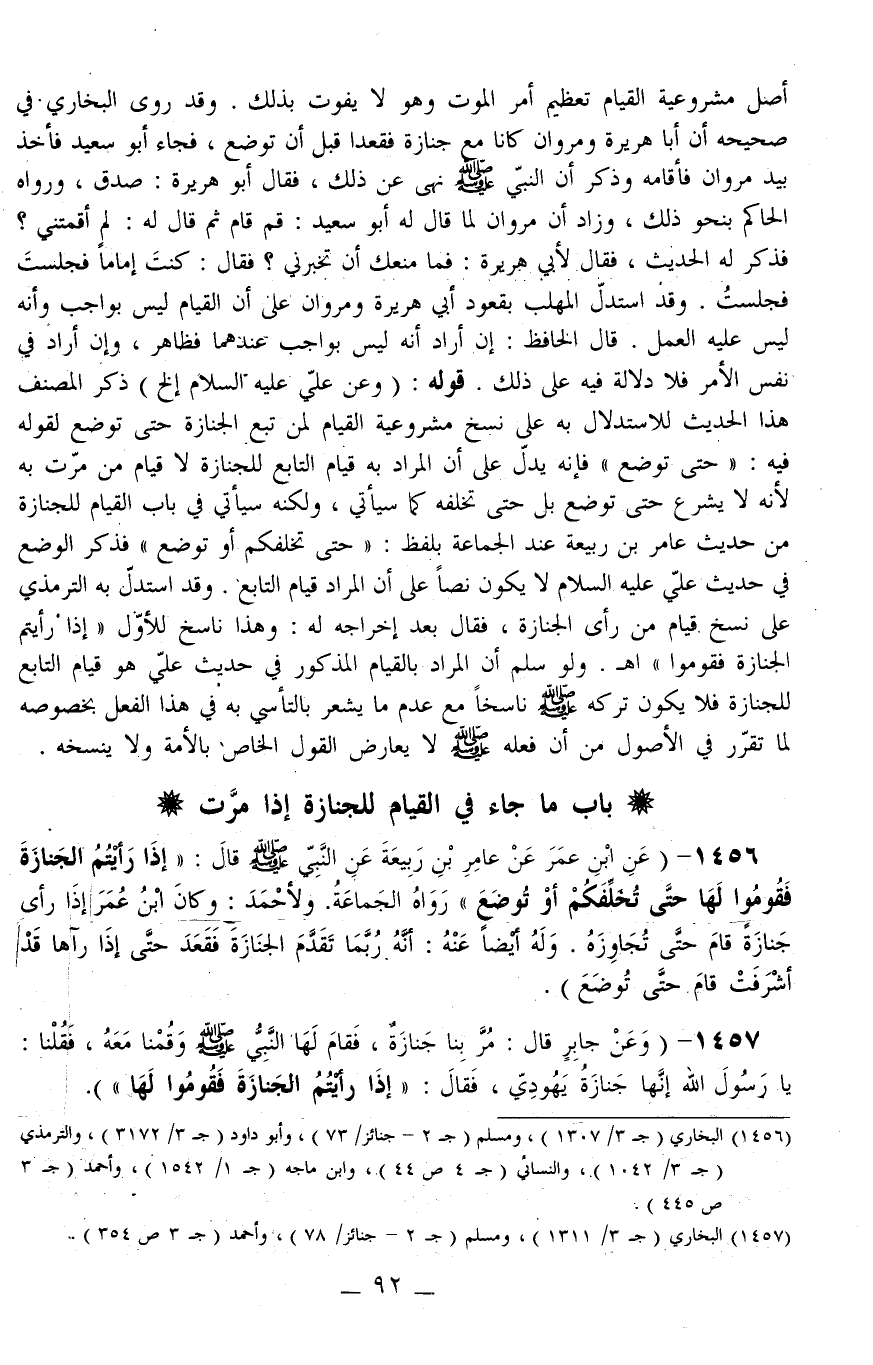 أصل مشروعية القيام تعظيم أمر الموت وهو لا يفوت بذلك . وقد روى البخاري في
صحيحه أن أبا هريرة ومروان كانا مع جنازة فقعدا قبل أن توضع ، فجاء أبو سعيد فأخذ
بيد مروان فأقامه وذكر أن النبيّ ﷺ نهى عن ذلك ، فقال أبو هريرة : صدق ، ورواه
الحاكم بنحو ذلك ، وزاد أن مروان لما قال له أبو سعيد : قم قام ثم قال له : لم أقمتني ؟
فذكر له الحديث ، فقال لأبي هريرة : فما منعك أن تخبرني ؟ فقال : كنتَ إماماً فجلستَ
فجلستُ . وقد استدلّ المهلب بقعود أبي هريرة ومروان على أن القيام ليس بواجب وأنه
ليس عليه العمل . قال الحافظ : إن أراد أنه ليس بواجب عندهما فظاهر ، وإن أراد في
نفس الأمر فلا دلالة فيه على ذلك . قوله : ( وعن عليّ عليه السلام إلخ ) ذكر المصنف
هذا الحديث للاستدلال به على نسخ مشروعية القيام لمن تبع الجنازة حتى توضع لقوله
فيه : « حتى توضع » فإنه يدلّ على أن المراد به قيام التابع للجنازة لا قيام من مرّت به
لأنه لا يشرع حتى توضع بل حتى تخلفه كما سيأتي ، ولكنه سيأتي في باب القيام للجنازة
من حديث عامر بن ربيعة عند الجماعة بلفظ : « حتى تخلفكم أو توضع » فذكر الوضع
في حديث عليّ عليه السلام لا يكون نصاً على أن المراد قيام التابع . وقد استدلّ به الترمذي
على نسخ قيام من رأى الجنازة ، فقال بعد إخراجه له : وهذا ناسخ للأوّل « إذا رأيتم
الجنازة فقوموا » اهـ . ولو سلم أن المراد بالقيام المذكور في حديث عليّ هو قيام التابع
للجنازة فلا يكون تركه ﷺ ناسخاً مع عدم ما يشعر بالتأسي به في هذا الفعل بخصوصه
لما تقرّر في الأصول من أن فعله ﷺ لا يعارض القول الخاص بالأمة ولا ينسخه .
❋ باب ما جاء في القيام للجنازة إذا مرَّت ❋
١٤٥٦ - ( عَنِ ابْنِ عمَرَ عَنْ عامِرِ بْنِ رَبِيعَةَ عَنِ النَّبِيّ ﷺ قالَ : « إذَا رَأيْتُمُ الجَنازَةَ
فَقُومُوا لَهَا حتَّى تُخَلِّفَكُمْ أوْ تُوضَعَ » رَوَاهُ الجَماعَةُ. ولأحْمَدَ : وكانَ ابْنُ عُمَرَ إذَا رأى
جَنازَةً قامَ حتَّى تُجَاوِزَهُ . وَلَهُ أيْضاً عَنْهُ : أنَّهُ رُبَّمَا تَقَدَّمَ الجَنازَةَ فَقَعَدَ حتَّى إذَا رآها قَدْ
أشْرَفَتْ قامَ حتَّى تُوضَعَ ) .
١٤٥٧ - ( وَعَنْ جابِرٍ قال : مُرَّ بِنا جَنازَةٌ ، فَقامَ لَهَا النَّبيُّ ﷺ وَقُمْنا مَعَهُ ، فَقُلْنا :
يا رَسُولَ الله إنَّها جَنازَةُ يَهُودِيّ ، فَقالَ : « إذَا رأيْتُمُ الجَنازَةَ فَقُومُوا لَهَا » ).
(١٤٥٦) البخاري ( جـ ٣/ ١٣٠٧ ) ، ومسلم ( جـ ٢ - جنائز/ ٧٣ ) ، وأبو داود ( جـ ٣/ ٣١٧٢ ) ، والترمذي
( جـ ٣/ ١٠٤٢ ) ، والنسائي ( جـ ٤ ص ٤٤ ) ، وابن ماجه ( جـ ١/ ١٥٤٢ ) ، وأحمد ( جـ ٣
ص ٤٤٥ ) .
(١٤٥٧) البخاري ( جـ ٣/ ١٣١١ ) ، ومسلم ( جـ ٢ - جنائز/ ٧٨ ) ، وأحمد ( جـ ٣ ص ٣٥٤ ) .
ـ ٩٢ ـ